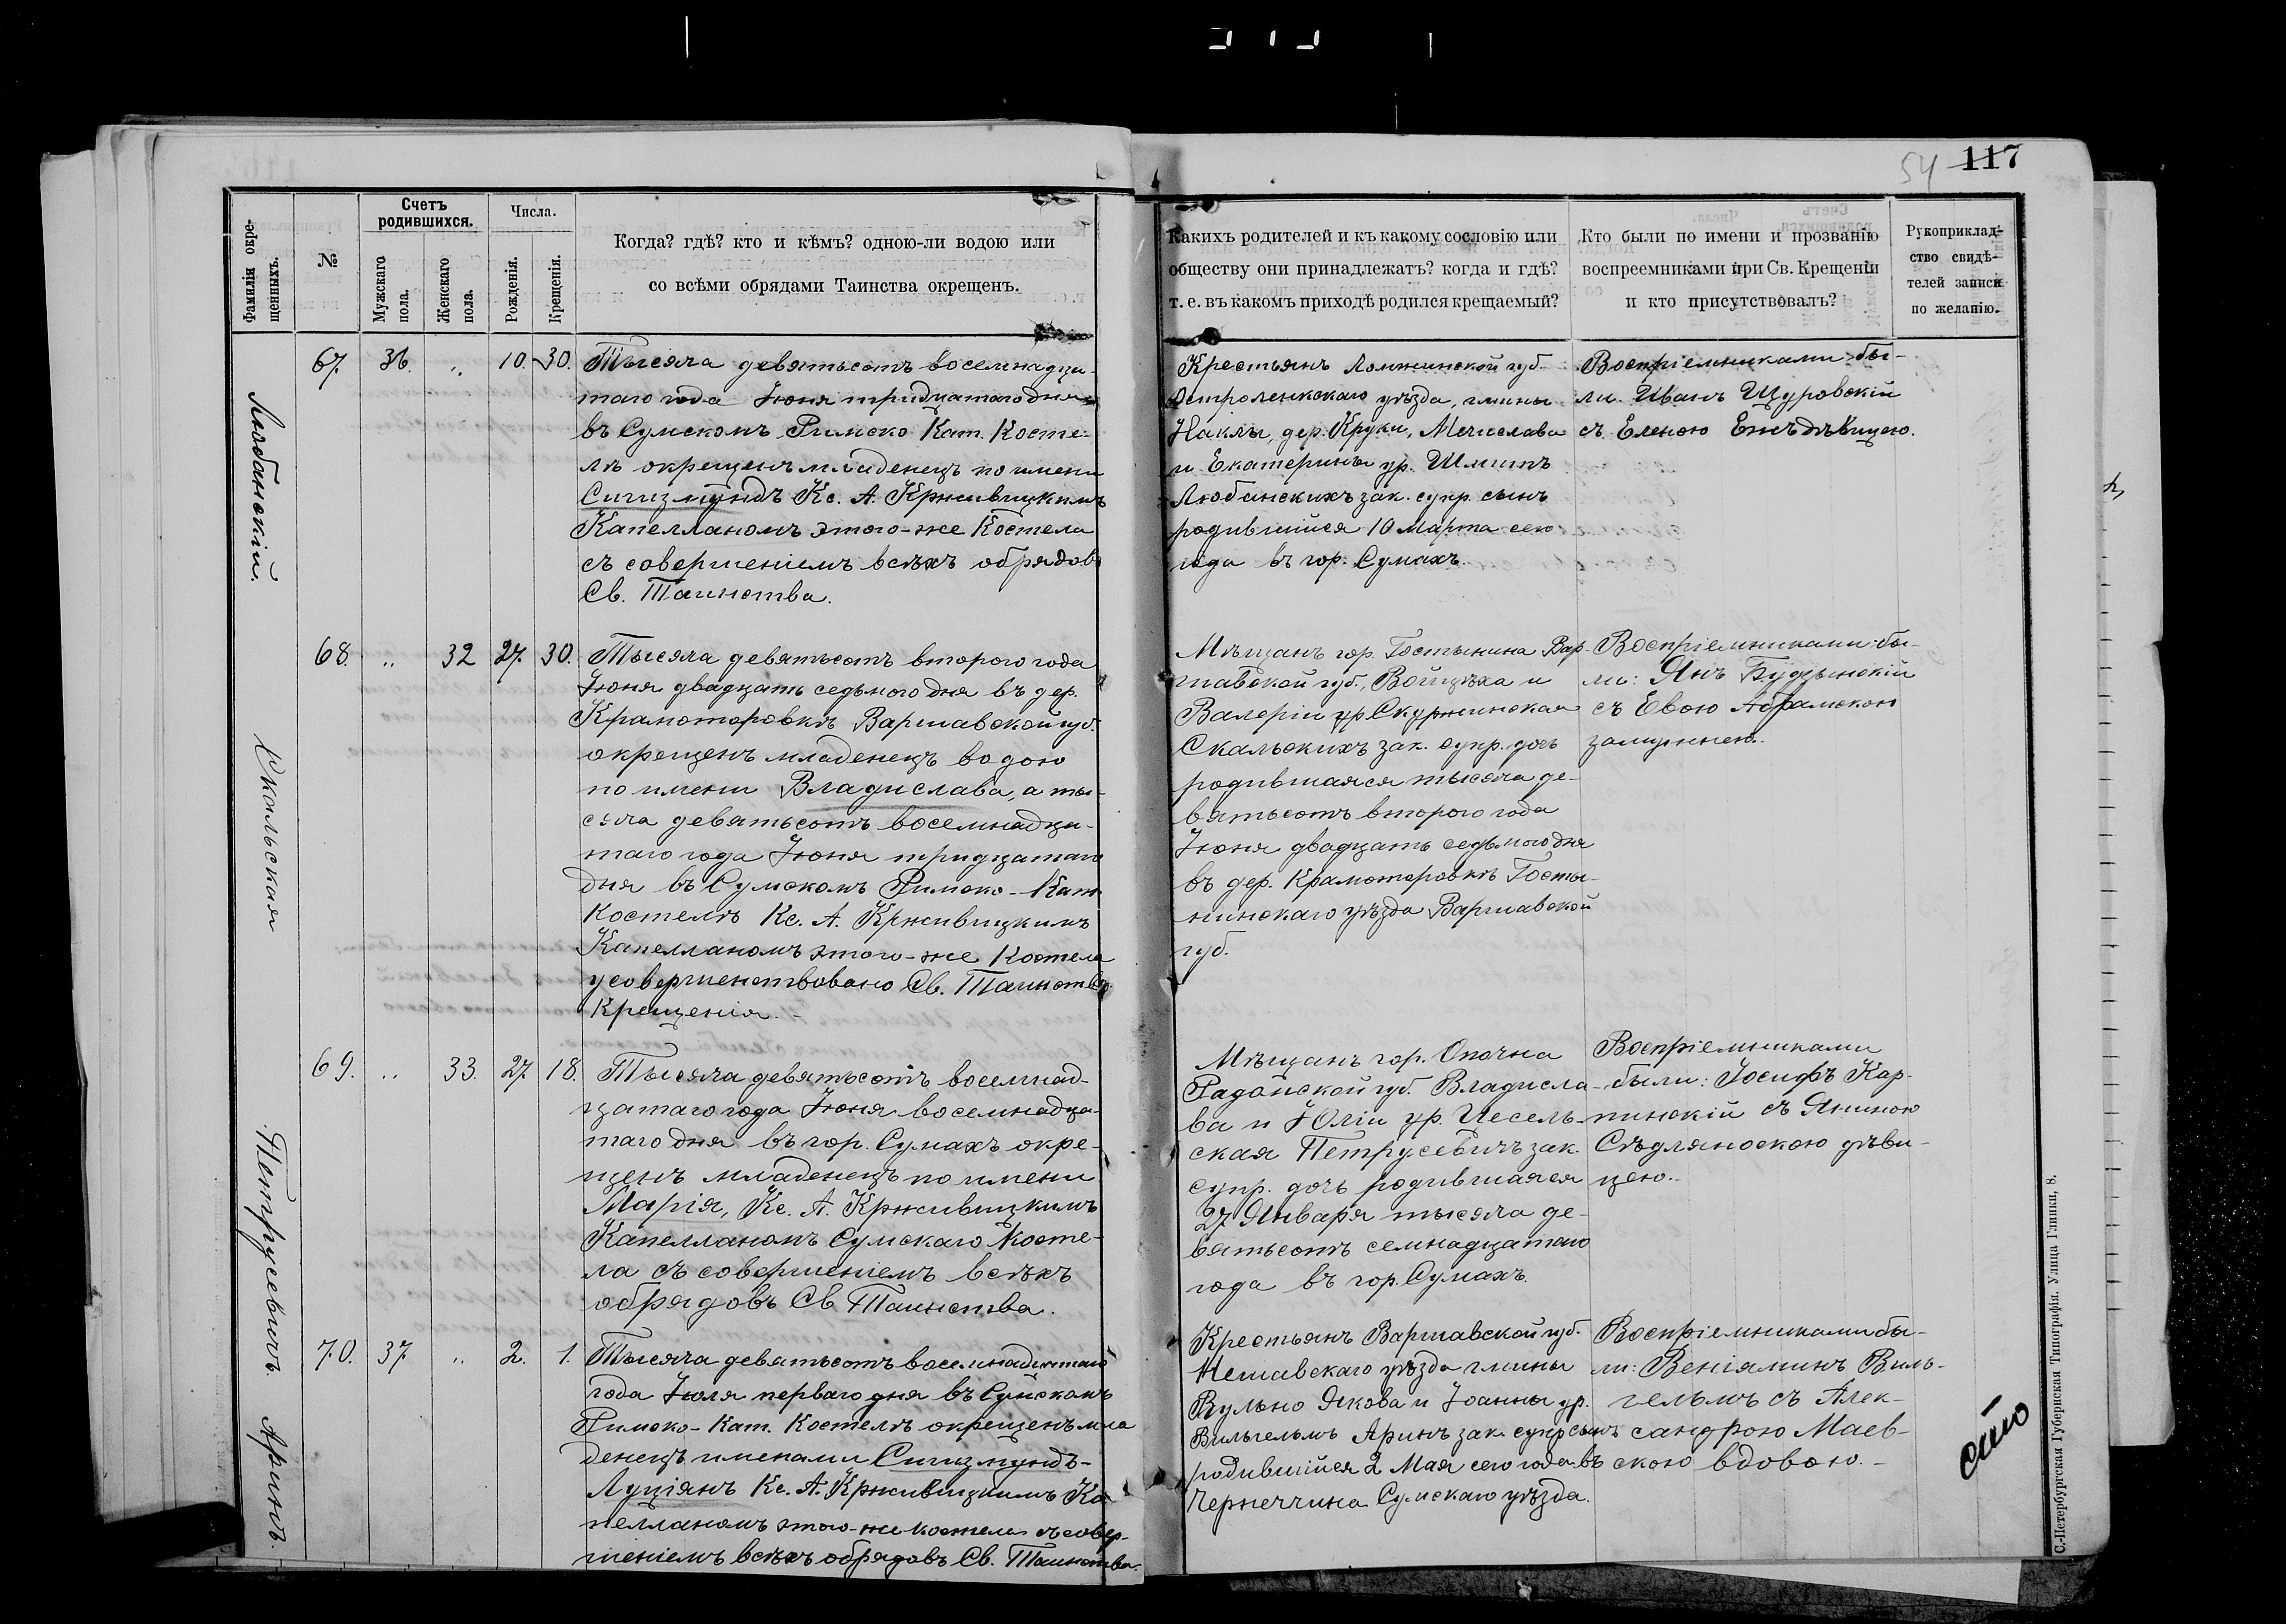 54 117
Фамиліи окре-
щенныхъ.
№
Счетъ
родившихся.
Мужскаго
пола.
Женскаго
пола.
Числа.
Рожденія.
Крещенія.
Когда? гдѣ? кто и кѣмъ? одною-ли водою или
со всѣми обрядами Таинства окрещенъ.
Какихъ родителей и къ какому сословію или
обществу они принадлежатъ? когда и гдѣ?
т. е. въ какомъ приходѣ родился крещаемый?
Кто были по имени и прозванію
воспреемниками при Св. Крещеніи
и кто присутствовалъ?
Рукоприклад-
ство свидѣ-
телей записи
по желанію.
Любанскій.
67. 36. „ 10. 30.
Тысяча девятьсотъ восемнадца-
таго года Июня тридцатаго дня
въ Сумскомъ Римско Кат. Косте-
лѣ окрещенъ младенецъ по имени
Сигизмундъ Кс. А. Крживицкимъ
Капелланомъ этого-же Костела
съ совершеніемъ всѣхъ обрядовъ
Св. Таинства.
Крестьянъ Ломжинской губ.
Остроленкскаго уѣзда, гмины
Наклы, дер. Круки, Мечислава
и Екатерины ур. Шмитъ
Любанскихъ зак. супр. сынъ
родившійся 10 Марта сего
года въ гор. Сумахъ.
Воспріемниками бы-
ли. Иванъ Щуровскій
съ Еленою
Скальская
68. „ 32 27. 30.
Тысяча девятьсотъ второго года
Июня двадцать седьмого дня въ дер.
Крамоторовкѣ Варшавской губ.
окрещенъ младенецъ водою
по имени Владислава, а ты-
сяча девятьсотъ восемнадца-
таго года Июня тридцатаго
дня въ Сумскомъ Римско-Кат
Костелѣ Кс. А. Крживицкимъ
Капелланомъ этого-же Костела
усовершенствовано Св. Таинство
Крещенія.-
Мѣщанъ гор. Гостынина Вар-
шавской губ., Войцѣха и
Валеріи ур Скуржинская
Скальскихъ зак. супр. дочь
родившаяся тысяча де-
вятьсотъ второго года
Июня двадцать седьмого дня
въ дер. Крамоторовкѣ Госты-
нинскаго уѣзда Варшавской
губ.
Воспріемниками бы-
ли: Янъ Будзынскій
съ Евою Абрамскою
замужнею.-
Петрусевичъ.
69. „ 33. 27. 18.
Тысяча девятьсотъ восемнад-
цатаго года Июня восемнадца-
таго дня въ гор. Сумахъ окре-
щенъ младенецъ по имени
Марія, Кс. А. Крживицкимъ
Капелланомъ Сумскаго Косте-
ла съ совершеніемъ всѣхъ
обрядовъ Св Таинства.
Мѣщанъ гор. Опочна
Радомской губ. Владисла-
ва и Юліи ур. Цесель-
ская Петрусевичъ зак.
супр. дочь родившаяся
27 Января тысяча де-
вятьсотъ семнадцатаго
года въ гор. Сумахъ.
Воспріемниками
были: Іосифъ Кар-
пинскій съ Яниною
Сѣдлянскою дѣви-
цею.-
Аринъ.
70. 37 „ 2. 1.
Тысяча девятьсотъ восемнадцатаго
года Июля перваго дня въ Сумскомъ
Римско-Кат. Костелѣ окрещенъ мла
денецъ именами Сигизмундъ-
Луціянъ Кс. А. Крживицкимъ Ка
пелланомъ этого-же костела съ совер-
шеніемъ всѣхъ обрядовъ Св. Таинства.
Крестьянъ Варшавской губ.
Нешавскаго уѣзда гмины
Якова и Іоанны ур.
Вильгельмъ Аринъ зак. супр сынъ
родившійся 2 Мая сего года въ
Чернеччина Сумскаго уѣзда.
Воспріемниками бы-
ли: Веніяминъ Виль-
гельмъ съ Алек-
сандрою Маев-
скою вдовою.-
сто
С.-Петербургская Губернская Типографія. Улица Глинки, 8.